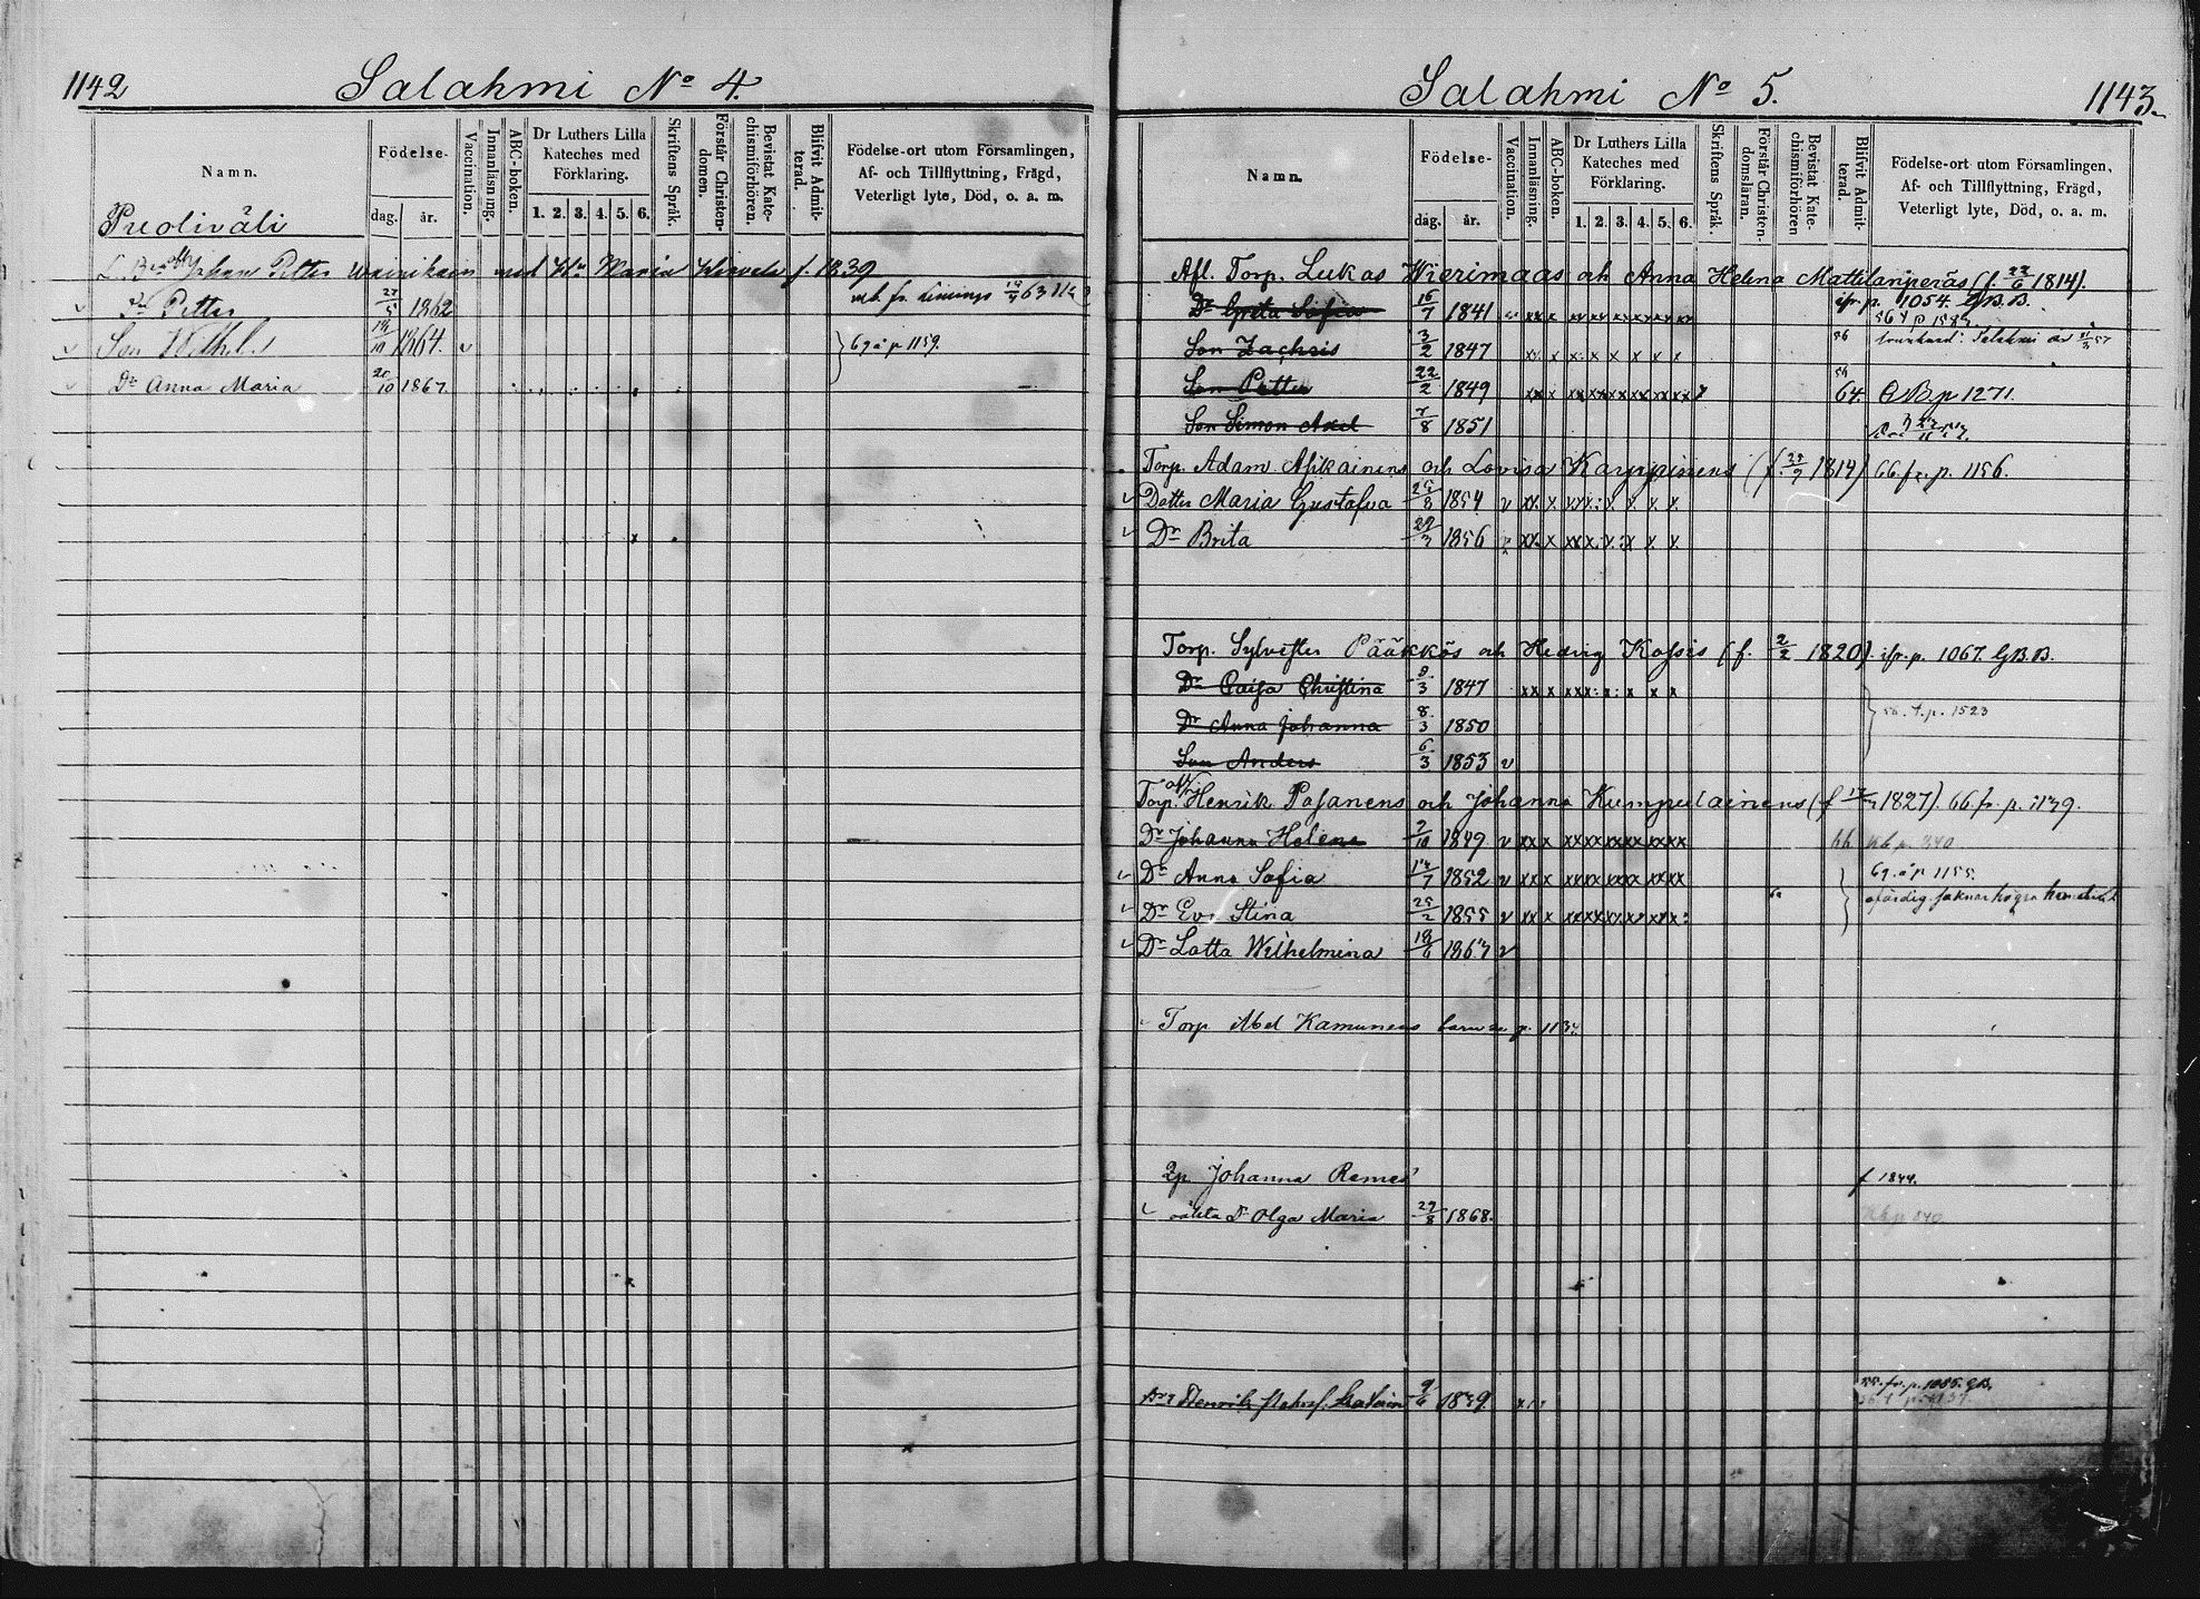 1142
Salahmi No 4.
Namn.
Födelse-
dag. år.
Vaccination.
Innanläsning.
ABC-boken.
Dr Luthers Lilla
Kateches med
Förklaring.
1. 2. 3. 4. 5. 6.
Skriftens Språk.
Förstår Christen-
domen.
Bevistat Kate-
chismiförhören.
Blifvit Admit-
terad.
Födelse-ort utom Församlingen,
Af- och Tillflyttning, Frägd,
Veterligt lyte, Död, o. a. m.
Puoliväli
Johan Petter Wainikain med Maria f. 1839
Petter 1862 63
Son Wilhel 1864. v 69 å p 1159.
Dr Anna Maria 20/10 1867.
Salahmi No 5.
1143.
Namn.
Födelse-
dag. år.
Vaccination.
Innanläsning.
ABC-boken.
Dr Luthers Lilla
Kateches med
Förklaring.
1. 2. 3. 4. 5. 6.
Skriftens Språk.
Förstår Christen-
domsläran.
Bevistat Kate-
chismiförhören
Blifvit Admit-
terad.
Födelse-ort utom Församlingen,
Af- och Tillflyttning, Frägd,
Veterligt lyte, Död, o. a. m.
Afl. Torp. Lukas Wierimaas och Anna Helena Mattilanperäs (f. 22/6 1814).
ifr. p. 1054. GB.B.
Dr Greta Sofia 16/7 1841
Son Zachris 3/2 1847 56
Son Petter 22/2 1849 64. p 1271.
Son Simon Axel 7/8 1851
Torp. Adam Asikainens och Lovisa Karppinens 1814) 66 fr. p. 1156.
Dotter Maria Gustafva 25/8 1854 v
Dr Brita 1856
Torp. Sylvester Pääkkös och Hedvig Kosis (f. 2/2 1820). ifr. p. 1067. GB.B.
Dr Caisa Christina 8/3 1847
Dr Anna Johanna 8/3 1850 56. t. p. 1523
Son Anders 6/3 1853 v
Torp. Henrik Pasanens och Johanna Kumpulainens (f 1827). 66 fr. p. 1139.
Dr Johanna Helena 2/10 1849 v 66
Dr Anna Sofia 1852 v 69. å p 1155.
Dr Eva Stina 25/2 1855 v
Dr Lotta Wilhelmina 18/6 1867 v
Torp Abel Kamunens barn se p. 113
Johanna Remes f 1844.
oäkta Dr Olga Maria 29/8 1868.
Henrik 9/6 1839 fr. p. 1085. GB.